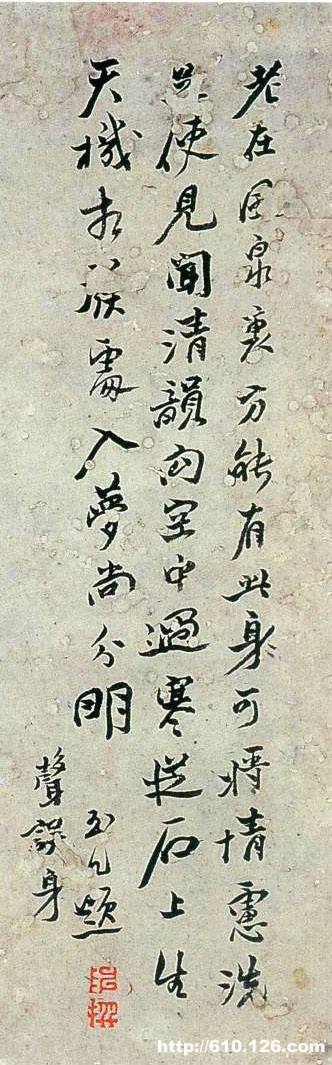 老在風泉裏方能有此身可將情慮洗
只使見聞清韻向空中過寒從石上生
天機處入夢尚分明
玉几題
聲誤身
撰
http://610.126.com